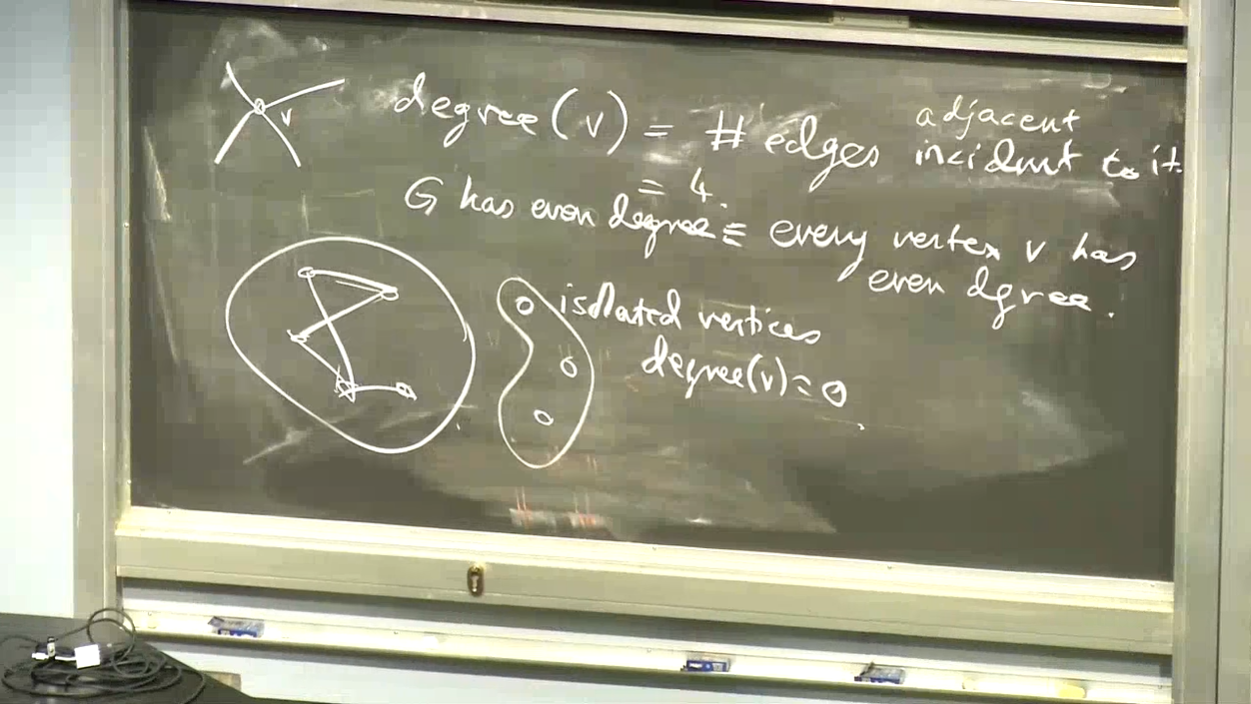 v
degree(v) = # edges adjacent
incident to it.
= 4.
G has even degree ≡ every vertex v has
even dgree.
isolated vertices
degree(v) = 0